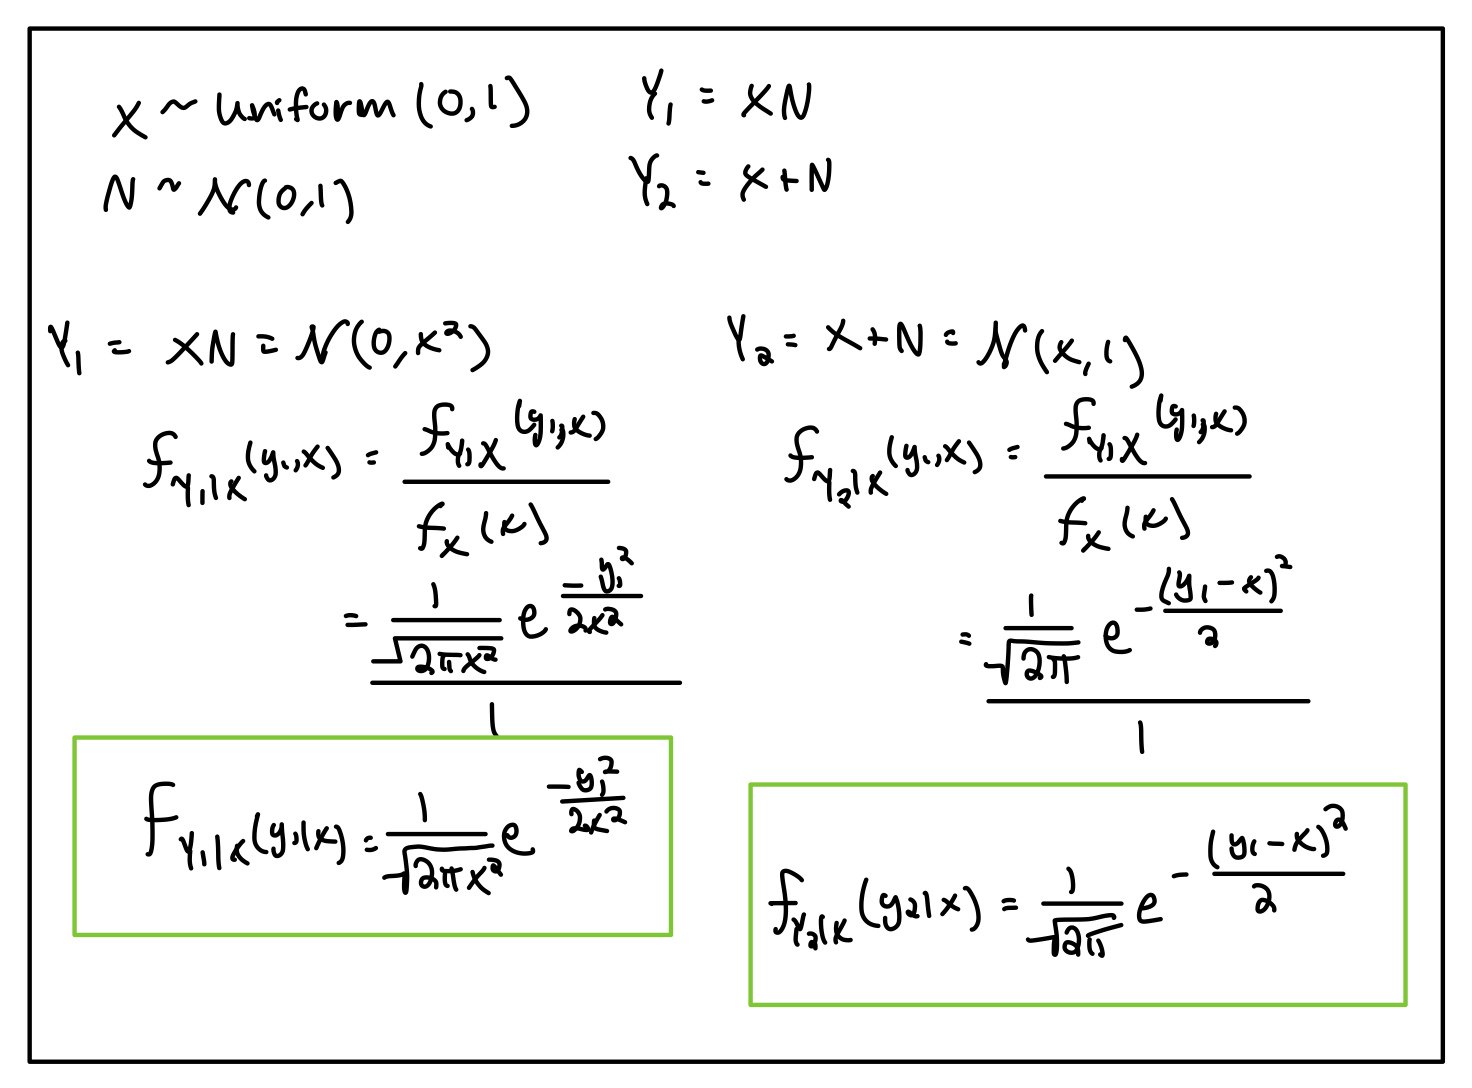 X ~ uniform (0,1)
N ~ 𝒩(0,1)
Y₁ = XN
Y₂ = X+N
Y₁ = XN = 𝒩(0,x²)
f_{Y₁|X}(y₁,x) = f_{Y₁X}(y₁,x) / f_X(x)
= (1/√(2πx²) e^{-y₁²/2x²}) / 1
f_{Y₁|X}(y₁|x) = 1/√(2πx²) e^{-y₁²/2x²}
Y₂ = X+N = 𝒩(x,1)
f_{Y₂|X}(y₁,x) = f_{Y₁X}(y₁,x) / f_X(x)
= (1/√(2π) e^{-(y₁-x)²/2}) / 1
f_{Y₂|X}(y₂|x) = 1/√(2π) e^{-(y₁-x)²/2}